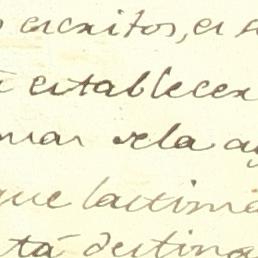 escritos, es
establecer
sela
que lastima
está destina